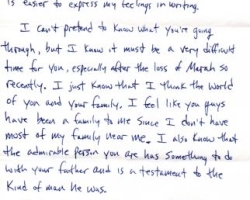 is easier to express my feelings in writing.
I can't pretend to know what you're going
through, but I know it must be a very difficult
time for you, especially after the loss of Marah so
recently. I just know that I think the world
of you and your family. I feel like you guys
have been a family to me since I don't have
most of my family near me. I also know that
the admirable person you are has something to do
with your father and is a testament to the
kind of man he was.